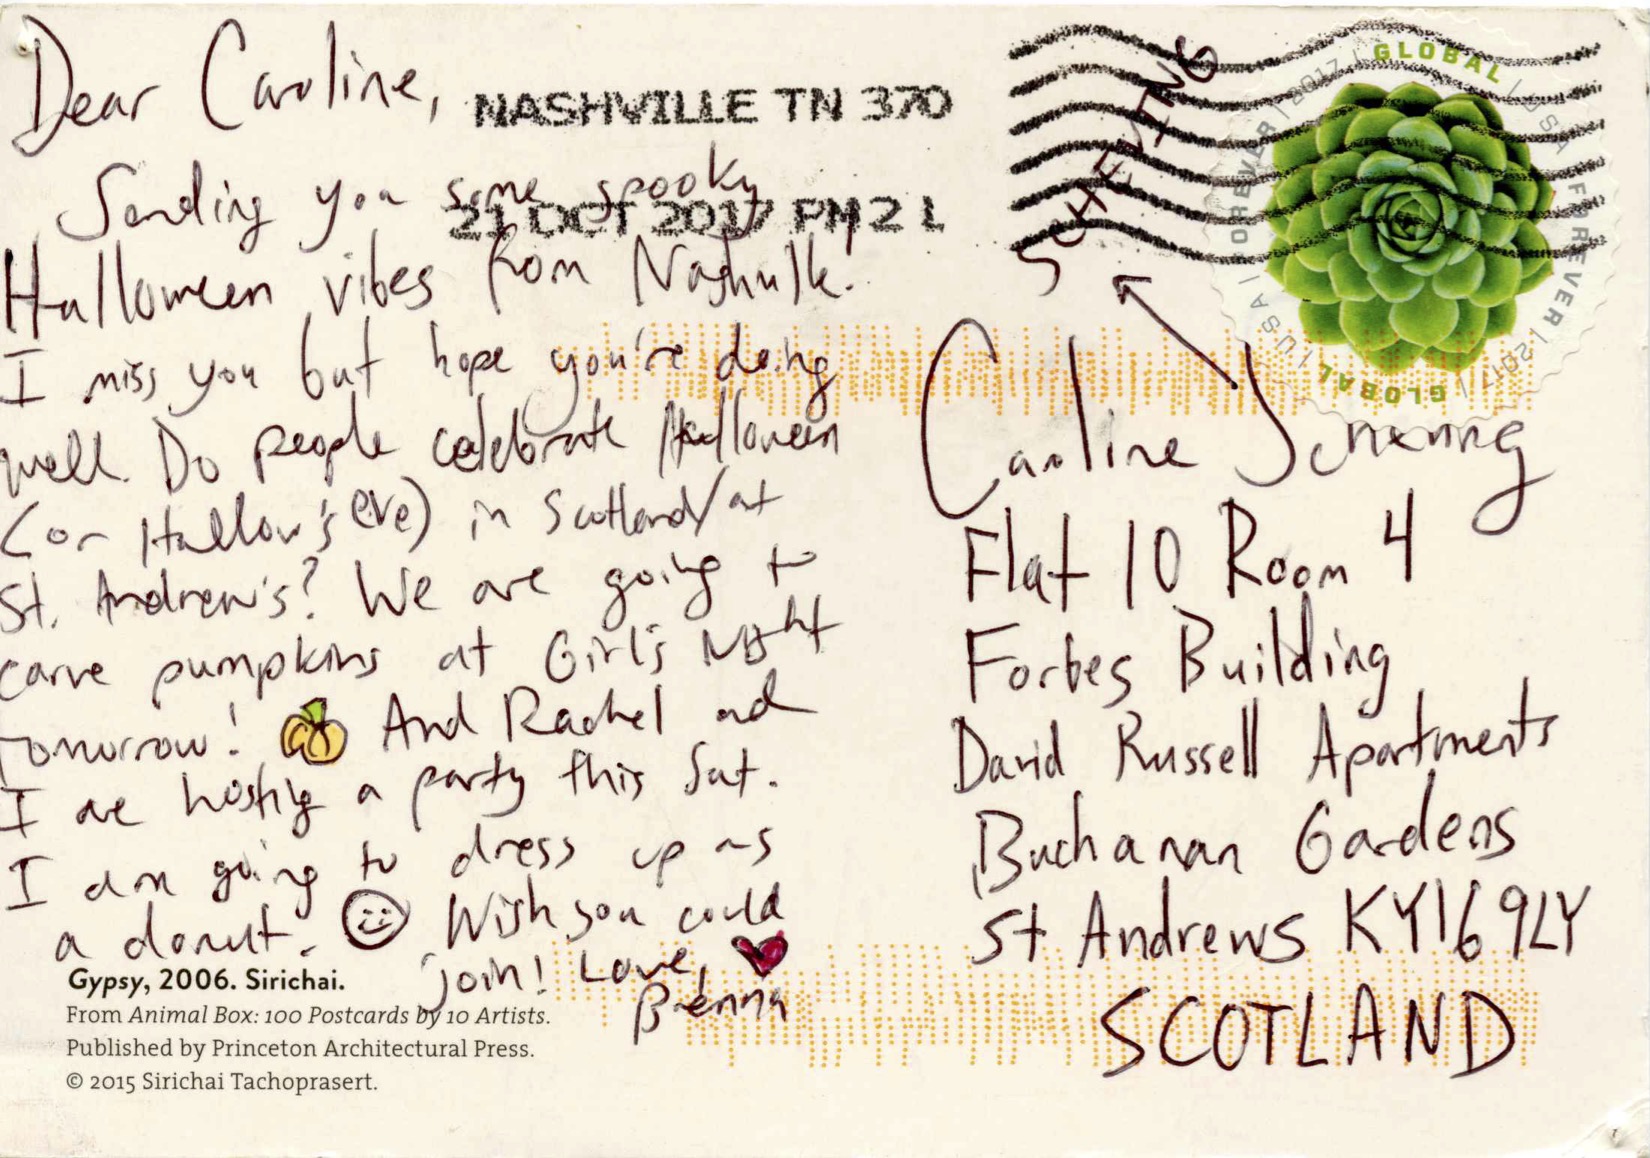 Dear Caroline,
Sending you some spooky
Halloween vibes from Nashville!
I miss you but hope you're doing
well. Do people celebrate Halloween
(or Hallow's eve) in Scotland/at
St. Andrew's? We are going to
carve pumpkins at Girl's Night
tomorrow! And Rachel and
I are hosting a party this Sat.
I am going to dress up as
a donut. Wish you could
join! Love,
Brenna
Gypsy, 2006. Sirichai.
From Animal Box: 100 Postcards by 10 Artists.
Published by Princeton Architectural Press.
© 2015 Sirichai Tachoprasert.
NASHVILLE TN 370
21 OCT 2017 PM 2 L
GLOBAL | USA | FOREVER | 2017 | GLOBAL | USA | FOREVER | 2017 |
Caroline
Flat 10 Room 4
Forbes Building
David Russell Apartments
Buchanan Gardens
St Andrews KY16 9LY
SCOTLAND